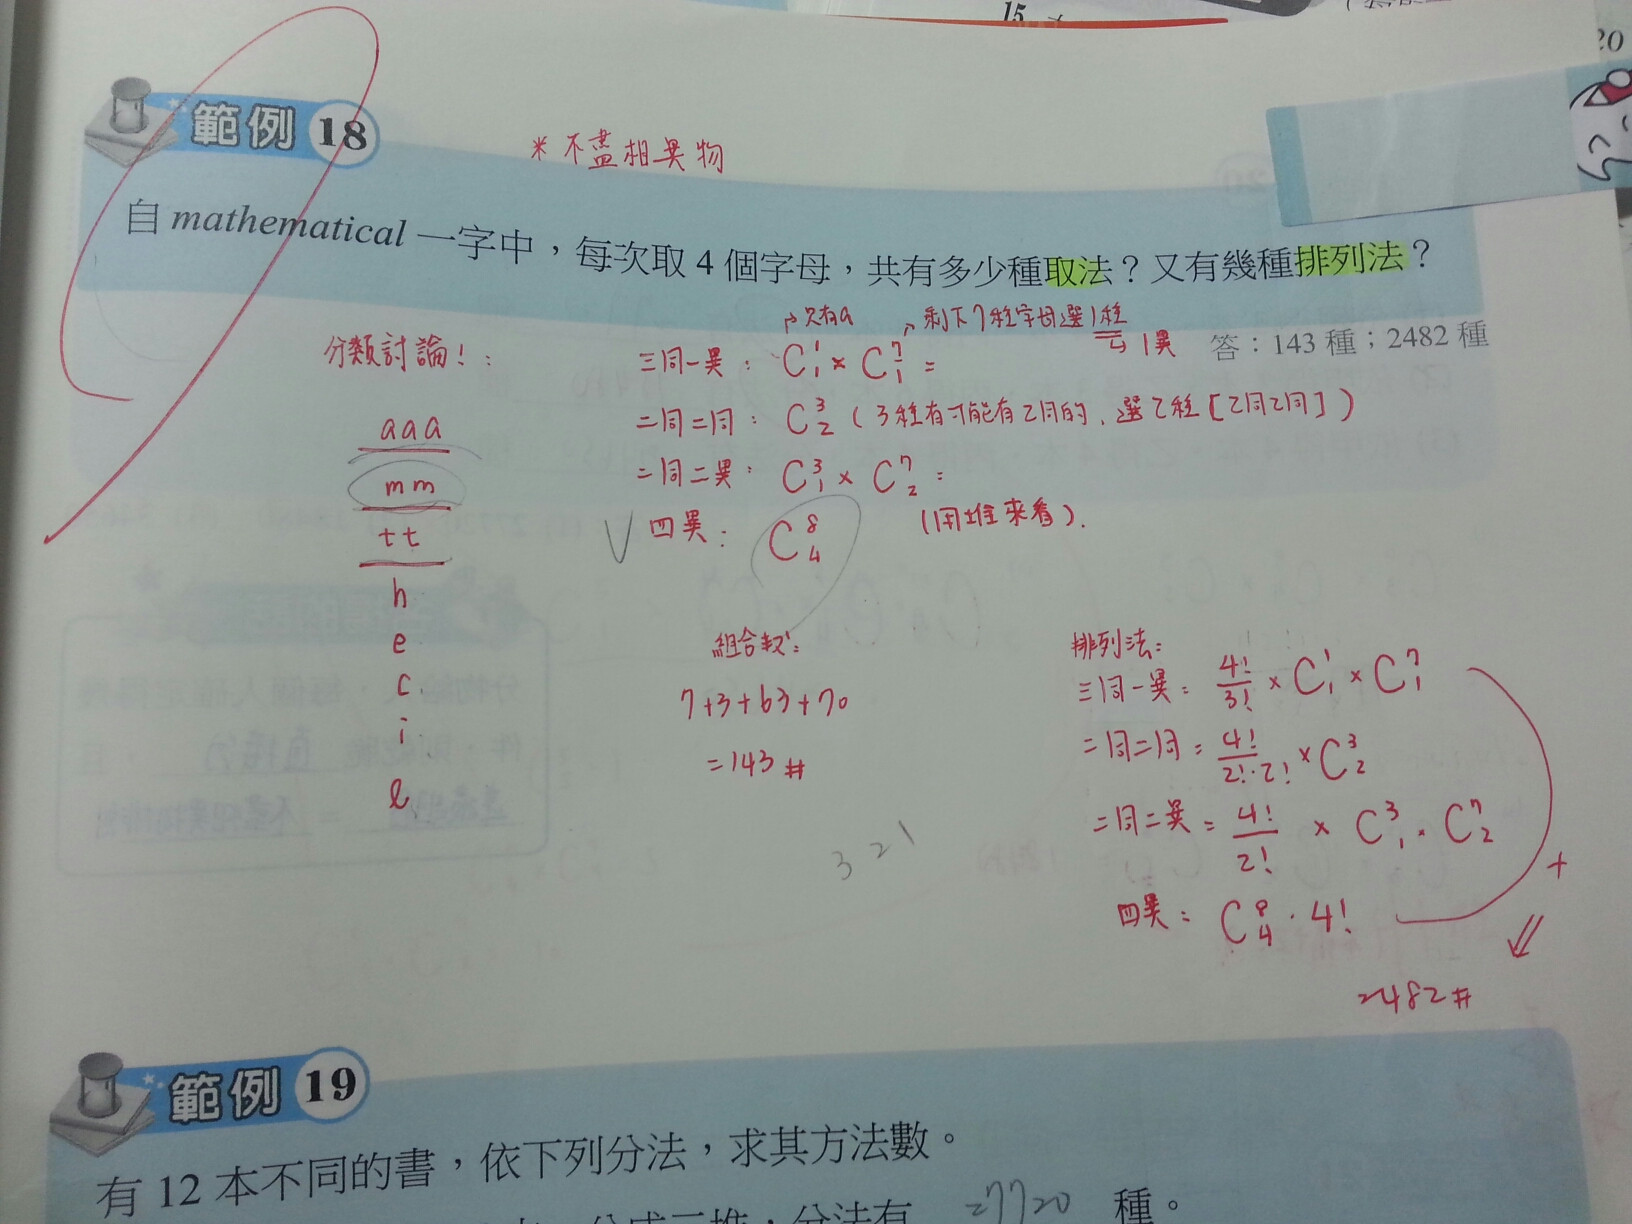 15
20
範例 18
*不盡相異物
自 mathematical 一字中，每次取 4 個字母，共有多少種取法？又有幾種排列法？
只有a
剩下7種字母選1種
1異
答：143 種；2482 種
分類討論！：
三同一異： C¹₁ × C⁷₁ =
二同二同： C³₂ (3種有可能有2同的，選2種[2同2同])
二同二異： C³₁ × C⁷₂ =
四異： C⁸₄
(用堆來看).
aaa
mm
tt
h
e
c
i
l
組合數：
7+3+63+70
=143 #
排列法：
三同一異： 4!/3! × C¹₁ × C⁷₁
二同二同 = 4!/2!·2! × C³₂
二同二異 = 4!/2! × C³₁ · C⁷₂
四異： C⁸₄ · 4!
+
2482 #
3 2 1
範例 19
有 12 本不同的書，依下列分法，求其方法數。
分法有 =7720 種。